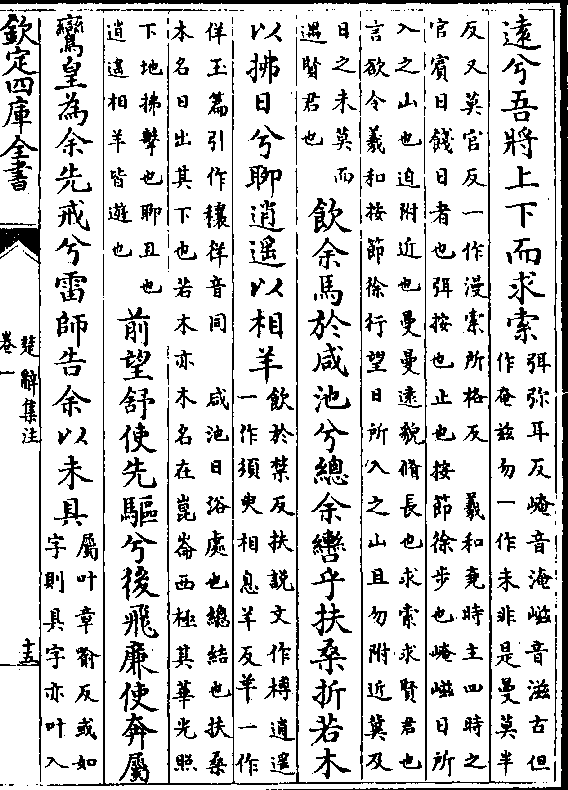 遠兮吾將上下而求索弭弥耳反崦音淹嵫音滋古但
作奄兹勿一作未非是曼莫半
反又莫官反一作漫索所格反 羲和堯時主四時之
官賓日餞日者也弭按也止也按節徐步也崦嵫日所
入之山也迫附近也曼曼逺貌脩長也求索求賢君也
言欲令羲和按節徐行望日所入之山且勿附近冀及
日之未莫而
遇賢君也
飲余馬於咸池兮總余轡乎扶桑折若木
以拂日兮聊逍遥以相羊飲於禁反扶説文作榑逍遥
一作須臾相息羊反羊一作
佯玉篇引作穰徉音同 咸池日浴處也總結也扶桑
木名日出其下也若木亦木名在崑崙西極其華光照
下地拂擊也聊且也
逍遥相羊皆遊也
前望舒使先驅兮後飛廉使奔屬
鸞皇為余先戒兮雷師告余以未具屬叶章喻反或如
字則具字亦叶入
欽定四庫全書
楚辭集注
卷一
十五